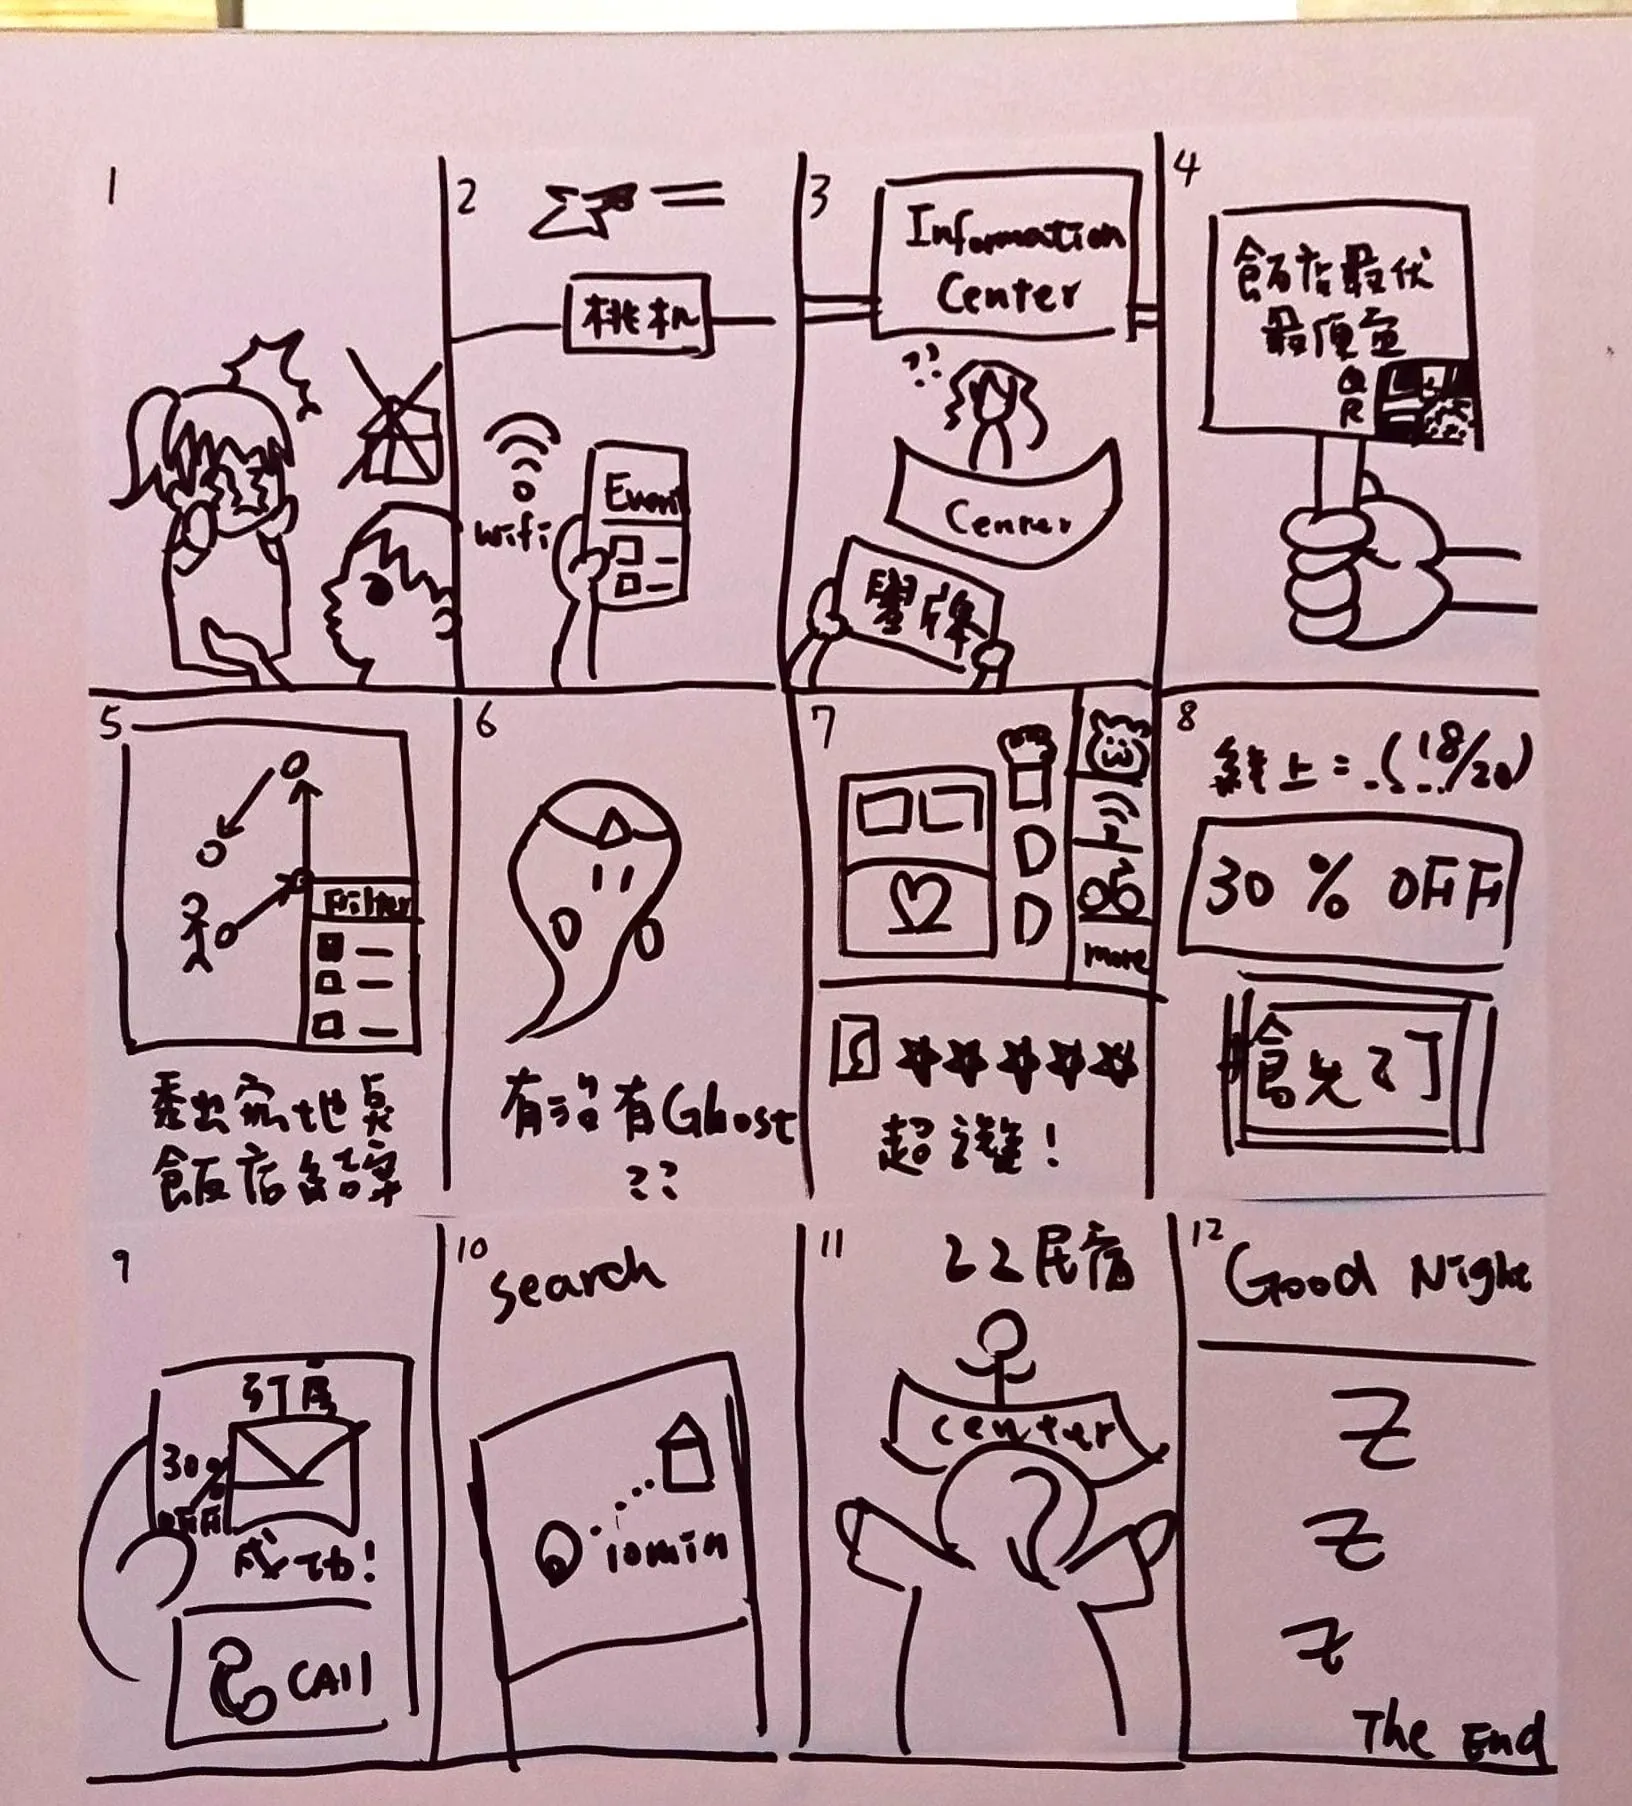 1
2
桃机
wifi
Event
3
Information
Center
??
Center
舉牌
4
飯店最优
最便宜
QR
5
Filter
秀出家地點
飯店結案
6
有沒有Ghost
??
7
more
超讚!
8
線上=
(18/20)
30 % OFF
搶先訂
9
訂房
30%
OFF
成功!
CAll
10
search
10min
11
22民宿
center
12
Good Night
Z
Z
Z
The End